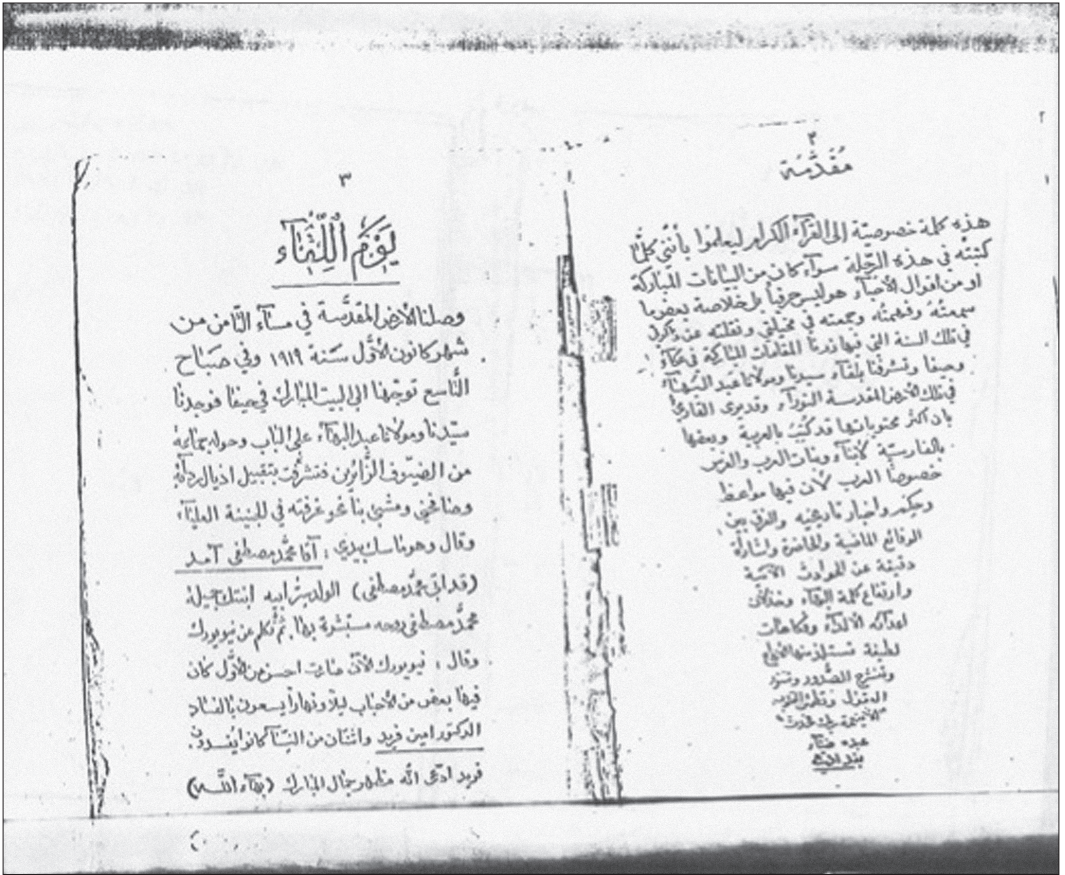 ٢
مُقدَّمة
هذه كلمة خصوصيّة إلى القرآء الكرام ليعلموا بأنني كلّما
كتبته في هذه الرّحلة سوآء كان من البيانات المباركة
او من اقوال الأحبآء هو ليس حرفياً بل خلاصة بعض ما
سمعتهُ وفهمتُه وجمعته في مخيلتي ونقلته عن ذكرى
في تلك السنة التي فيها زرنا المقامات المباركة في عكآء
وحيفا وتشرفنا بلقآء سيدنا ومولانا عبد البهآء
في تلك الأرض المقدسة النورآء وقد يرى القارئ
بان اكثر محتوياتها قد كُتبَ بالعربية وبعضها
بالفارسيّة لأبنآء وبنات العرب والفرس
خصوصاً العرب لأن فيها مواعظ
وحِكم واخبار تاريخيه والتي بين
الوقائع الماضية والحاضرة واشارة
دقيقة عن الحوادث الآتية
وارتفاع كلمة البهآء وخذلان
اعدآئه الألدآء وفكاهات
لطيفة
وتنشرح الصّدور وتنور
العقول
عبده
٣
يَوَمُ اللِّقآء
وصلنا الأرض المقدَّسة في مسآء الثّامن من
شهر كانون الأوّل سَنة ١٩١٩ وفي صَبَاح
التَّاسع توجّهنا الى البيت المبارك في حيفا فوجدنا
سيّدنا ومولانا عبد البهآء على الباب وحوله جماعة
من الضيوف الزَّائرين فتشرّفت بتقبيل اذيال ردآئه
وصافحني ومشى بنا نحو غرفته في الجنينة العليآء
وقال وهو ماسك بيدي : آقا محمَّد مصطفى آمد
(قد اتى محمَّد مصطفى) الولد سرّ ابيه ابنتك جميلة
محمَّد مصطفى روحه مستبشرة بها. ثم تكلم عن نيويورك
وقال : نيويورك الآن صارت احسن من الأوّل كان
فيها بعض من الأحباب ليلا ونهاراً يسعون بالفساد
الدكتور امين فريد واثنتان من النسآ كانوا يفسدون.
فريد ادعى انّه مظهر جمال المبارك (بهآء اللّه)